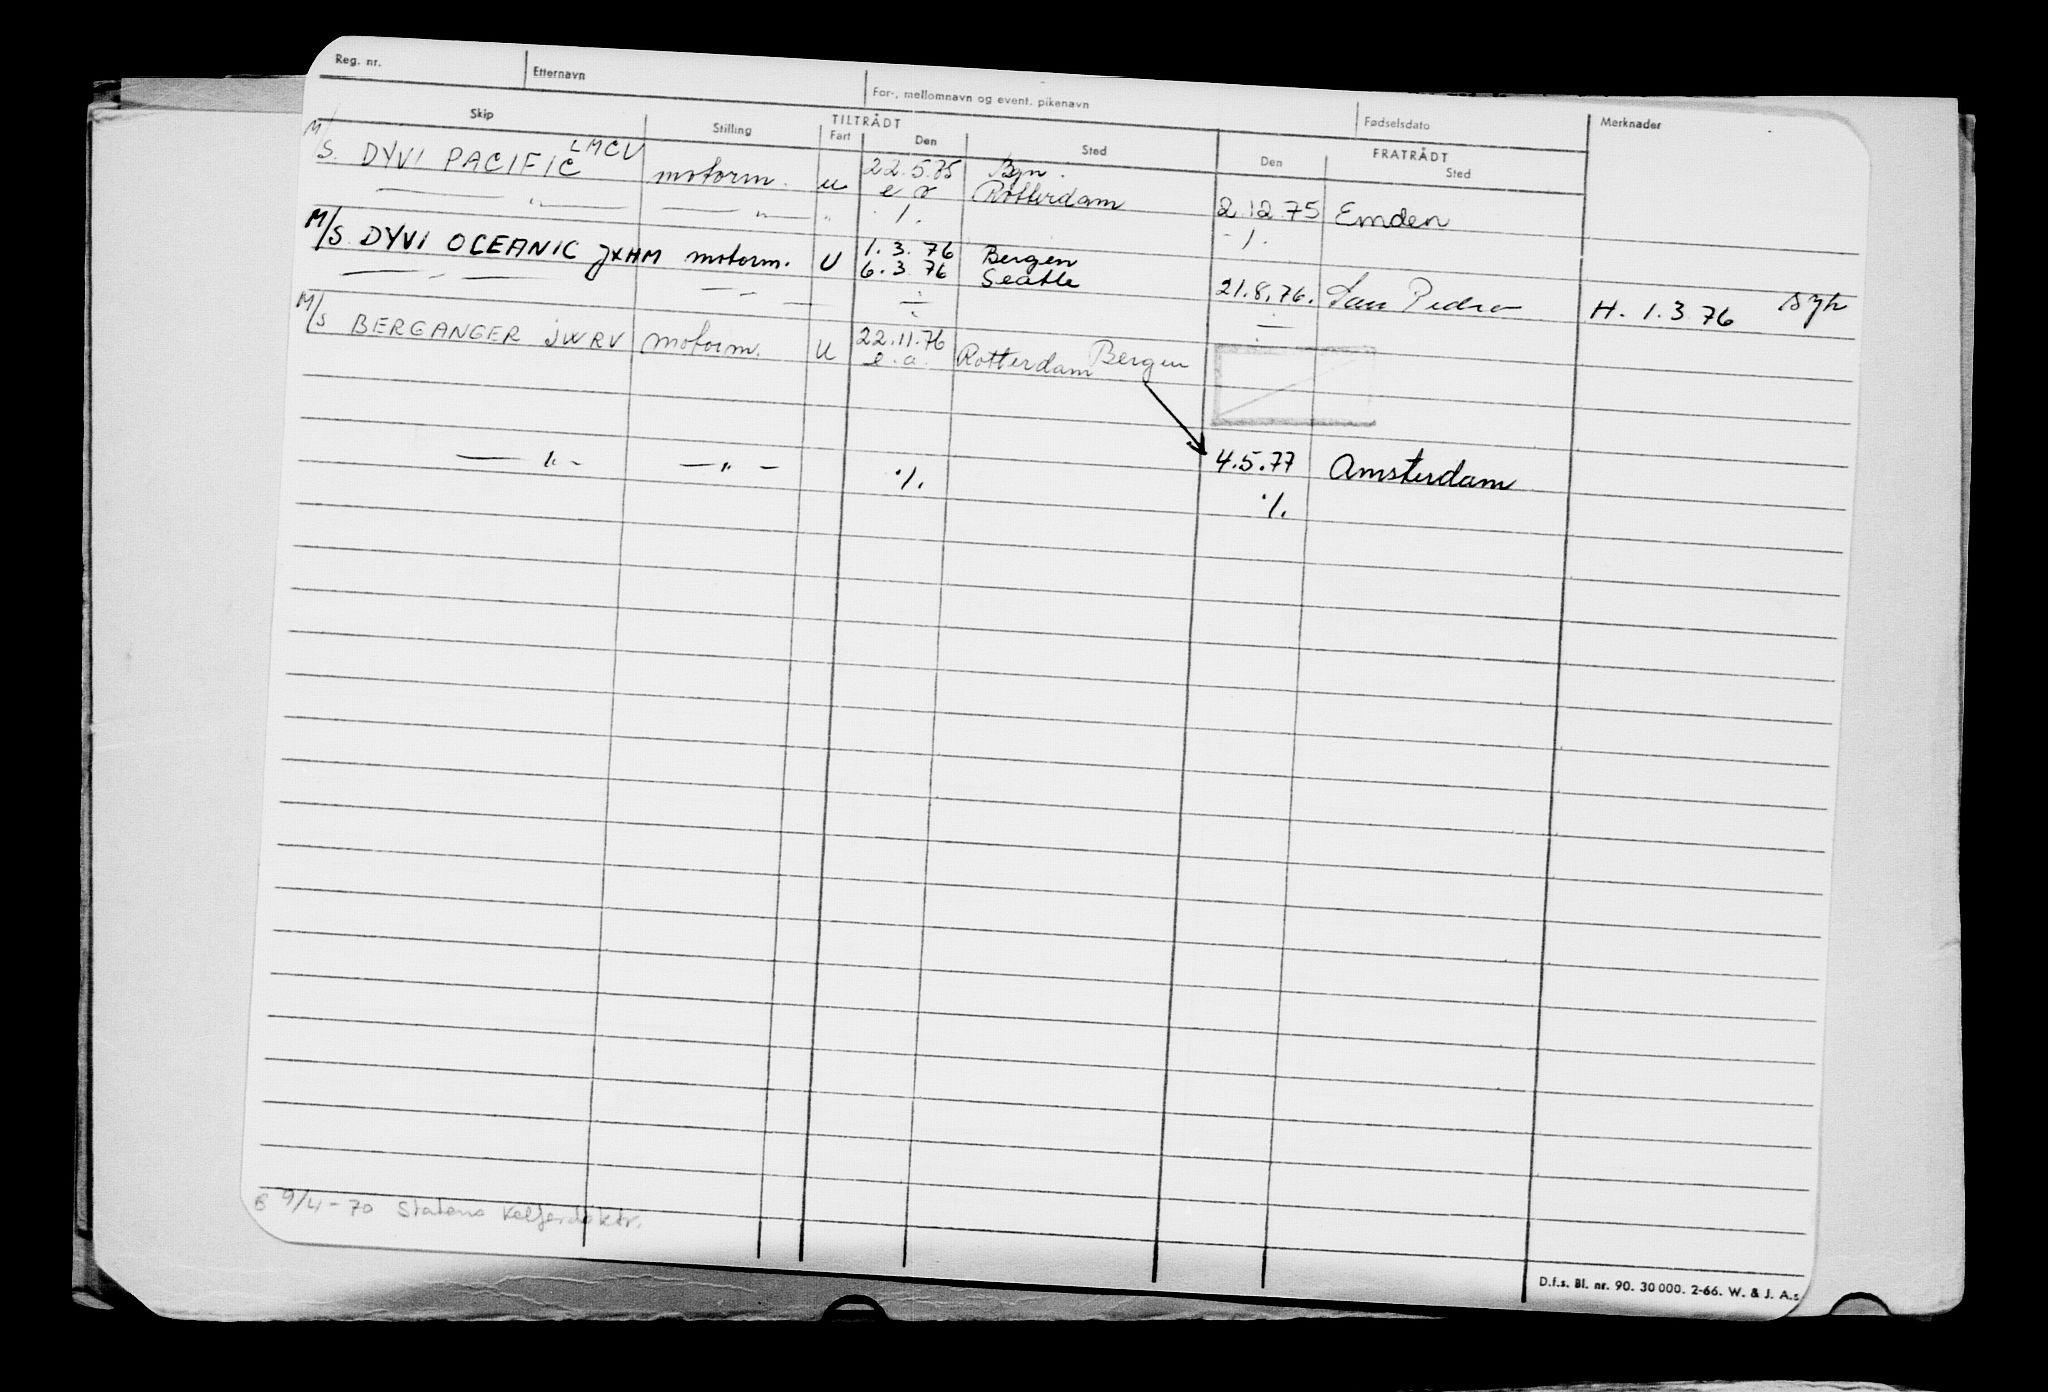 Reg. nr. Etternavn For-, mellomnavn og event. pikenavn Fødselsdato Merknader
Skip Stilling TILTRÅDT FRATRÅDT
Fart Den Sted Den Sted
M/S. DYVI PACIFIC LMCV motorm. u 22.5.75 Bgn.
Rotterdam 2.12.75 Emden
— " — — " — " ./. ./.
M/S DYVI OCEANIC JXHM motorm. U 1.3.76 Bergen
6.3 76 Seatle 21.8.76. San Pedro H. 1.3 76 syk
— " — — " — ÷ ÷
M/S BERGANGER JWRV motorm. U 22.11.76 Bergen
e.a. Rotterdam
4.5.77 Amsterdam
— " — — " — ./. ./.
9/4-70 Statens
D.f.s. Bl. nr. 90. 30 000. 2-66. W. & J. A.s